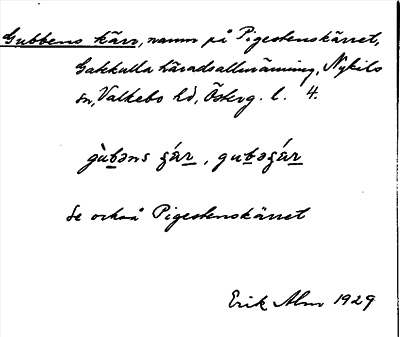 Gubbens kärr, namn på Pigestenskärret,
Gakkulla häradsallmänning, Nykils
sn, Valkebo hd, Österg. l. 4.
gùbəns ʒár, gubəʒár
Se också Pigestenskärret
Erik Alm 1929